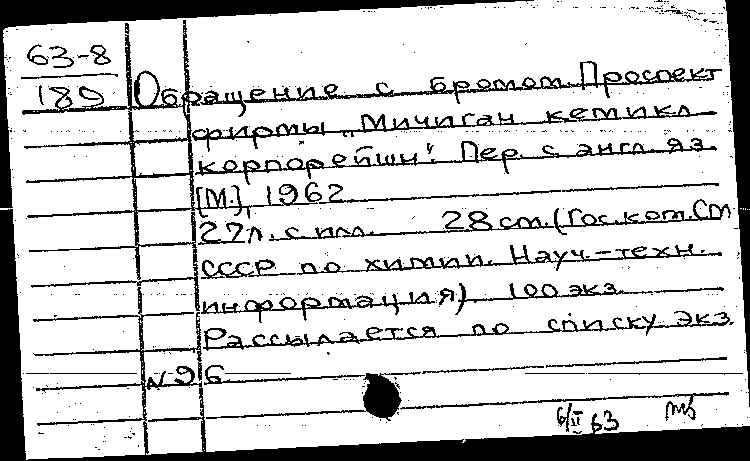 63-8
189
Обращение с бромом. Проспект
фирмы „Мичиган кемикл
корпорейшн". Пер. с англ. яз.
[М.], 1962
27л. с илл. 28 см. (Гос. ком. СМ
СССР по химии. Науч.-техн.
информация) 100 экз.
Рассылается по списку. Экз.
№ 96
6/II 63